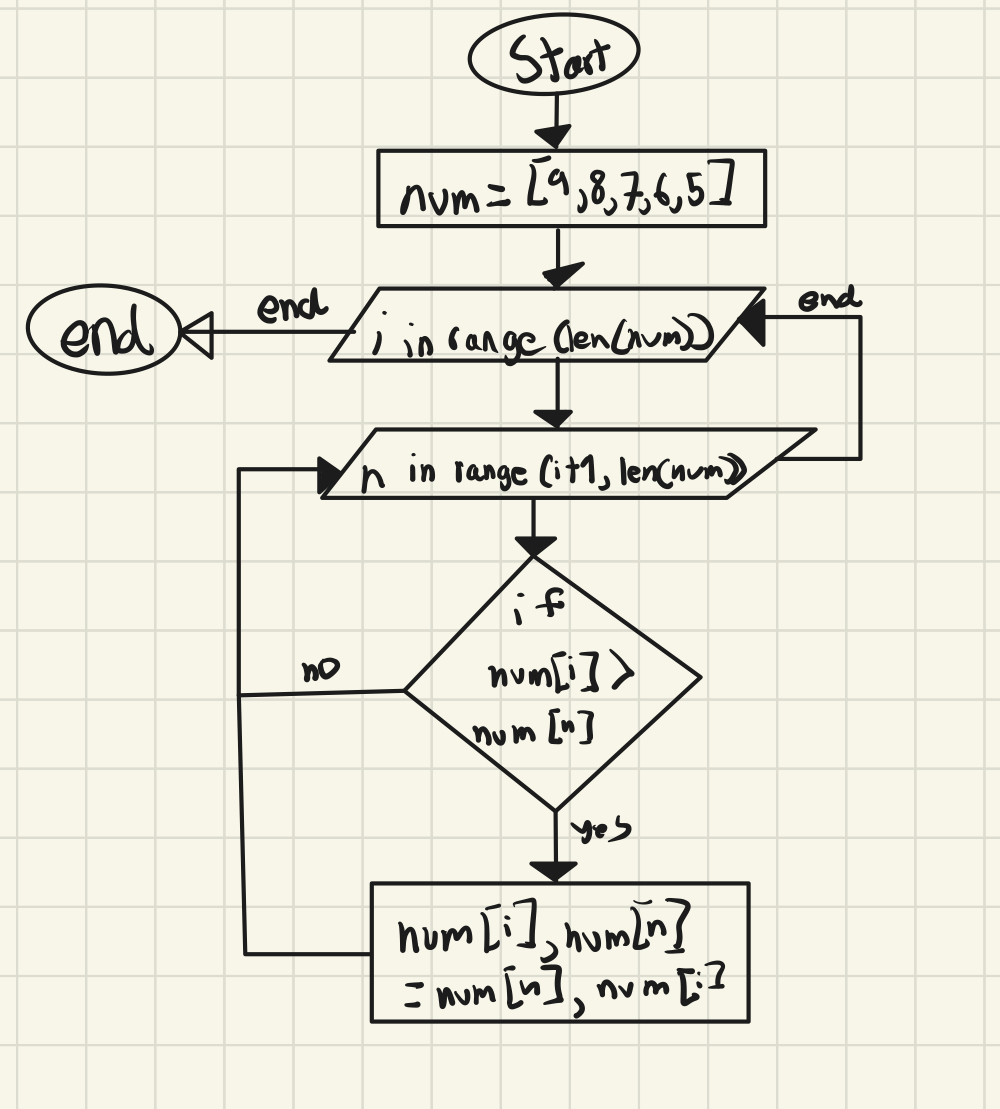 Start
num = [9,8,7,6,5]
end
end
i in range (len(num))
end
n in range (i+1, len(num))
if
num[i] >
num [n]
no
yes
num [i], num[n]
= num [n], num[i]